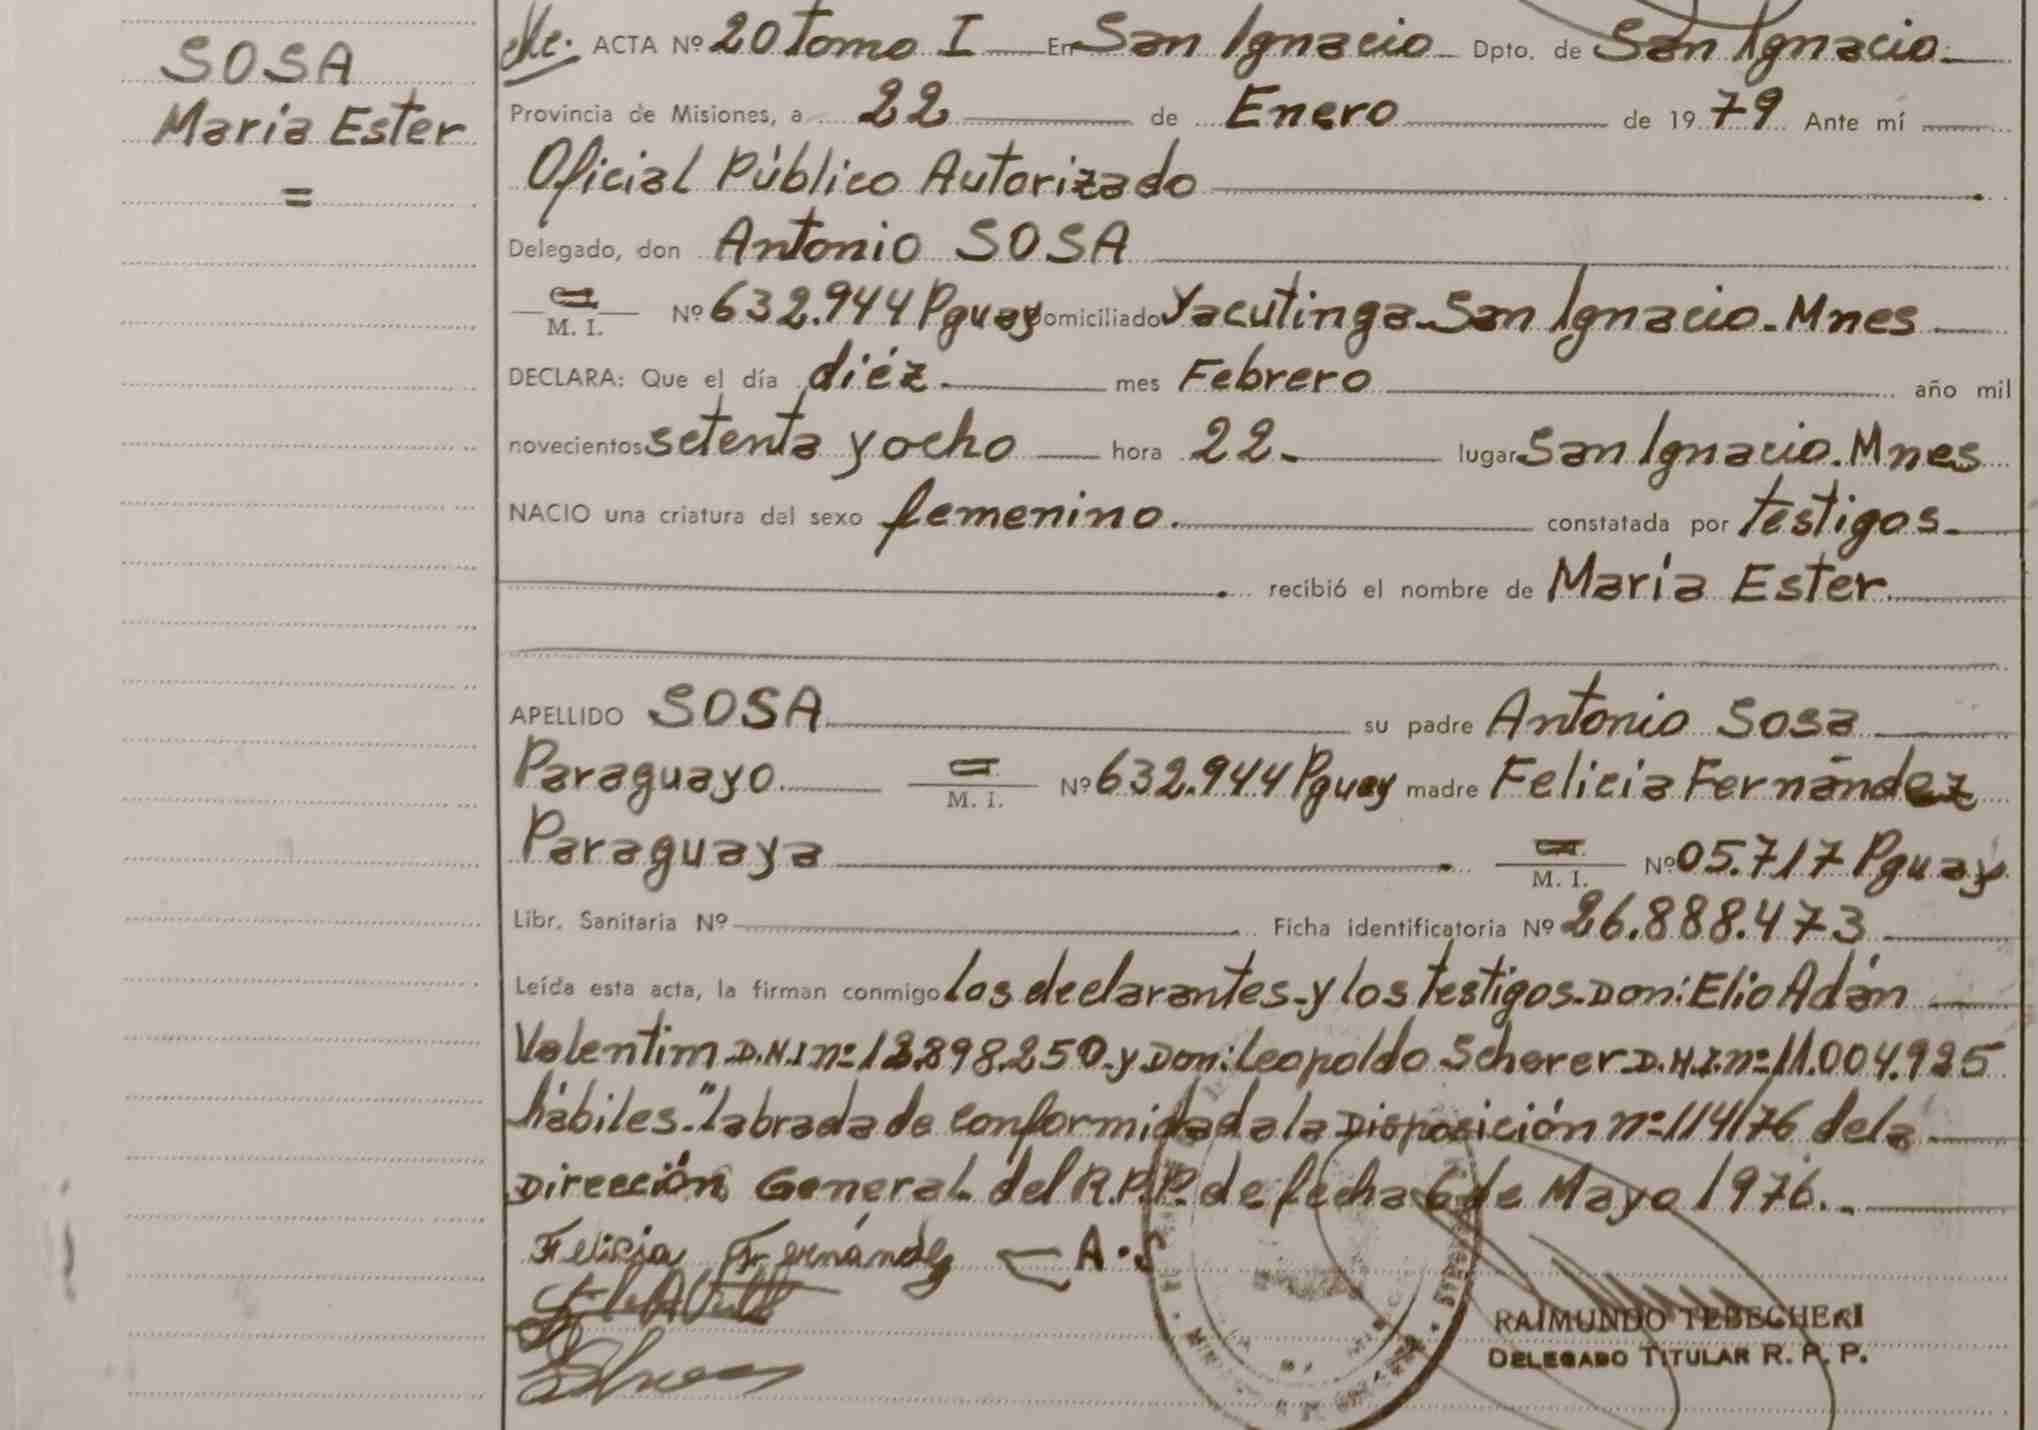 SOSA
Maria Ester
=
ACTA Nº 20 Tomo I En San Ignacio Dpto. de San Ignacio.
Provincia de Misiones, a 22 de Enero de 1979 Ante mí
Oficial Público Autorizado
Delegado, don Antonio SOSA
C.I. M. I. Nº 632.944 Pguay domiciliado Yacutinga-San Ignacio-Mnes
DECLARA: Que el día diéz mes Febrero año mil
novecientos setenta y ocho hora 22 lugar San Ignacio.Mnes
NACIO una criatura del sexo femenino. constatada por testigos.
recibió el nombre de María Ester
APELLIDO SOSA su padre Antonio Sosa
Paraguayo C.I. M. I. Nº 632.944 Pguay madre Felicia Fernández
Paraguaya C.I. M. I. Nº 05.717 Pguay
Libr. Sanitaria Nº Ficha identificatoria Nº 26.888.473
Leída esta acta, la firman conmigo los declarantes y los testigos-Don: Elio Adán
Valentim D.N.I nº y Don: Leopoldo Scherer D.N.I. nº 11.004.925
hábiles-"labrada de conformidad a la Disposición nº 114/76 de la
Dirección General del R.P.P. de fecha 6 de Mayo 1976.
Felicia Fernández A.S
RAIMUNDO TEBECHERI
DELEGADO TITULAR R. P. P.